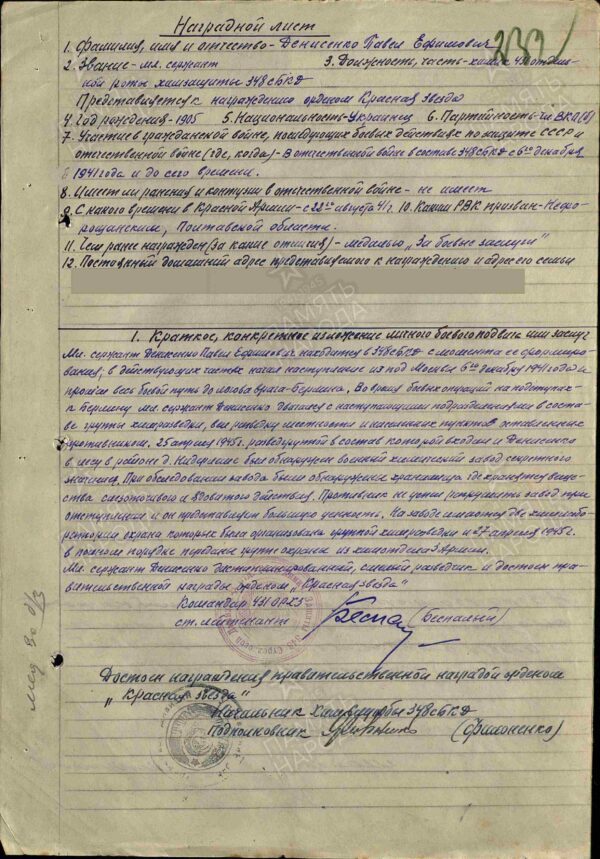 Наградной лист
1. Фамилия, имя и отчество - Денисенко Павел Ефимович
2. Звание - мл. сержант 3. Должность, часть - химик 431 отдель-
ной роты химзащиты 348 сБКД
Представляется к награждению орденом Красная звезда
4. Год рождения - 1905 5. Национальность - Украинец 6. Партийность - чл. ВКП(б)
7. Участие в гражданской войне, последующих боевых действиях по защите СССР и
отечественной войне (где, когда) - В отечественной войне в составе 348 сБКД с 6го декабря
1941 года и до сего времени.
8. Имеет ли ранения и контузии в отечественной войне - не имеет
9. С какого времени в Красной Армии - с 22го августа 41 г. 10. Каким РВК призван - Нехво-
рощанским, Полтавской области.
11. Чем ранее награжден (за какие отличия) - медалью „За боевые заслуги"
12. Постоянный домашний адрес представляемого к награждению и адрес его семьи
1. Краткое, конкретное изложение личного боевого подвига или заслуг
Мл. сержант Денисенко Павел Ефимович находится в 348 сБКД с момента ее формиро-
вания, в действующих частях начал наступление из под Москвы 6го декабря 1941 года и
прошел весь боевой путь до логова врага - Берлина. Во время боевых операций на подступах
к Берлину мл. сержант Денисенко двигался с наступающими подразделениями в соста-
ве группы химразведки, вел разведку местности и населенных пунктов оставленных
противником. 25 апреля 1945 г. разведгруппой в состав которой входил и Денисенко
в лесу в районе д. был обнаружен военный химический завод секретного
значения. При обследовании завода были обнаружены хранилища где хранятся веще-
ства слезоточивого и ядовитого действия. Противник не успел разрушить завод при
отступлении и он представляет большую ценность. На заводе имеются две химлабо-
ратории охрана которых была организована группой химразведки и 27 апреля 1945 г.
в полном порядке передана группе охраны из химотдела 3 Армии.
Мл. сержант Денисенко дисциплинированный, смелый разведчик и достоин пра-
вительственной награды орденом „Красная звезда"
Командир 431 ОРХЗ
ст. лейтенант (Беспалый)
Достоин награждения правительственной наградой орденом
„Красная звезда"
Начальник Химслужбы 348 сБКД
Подполковник (Филоненко)